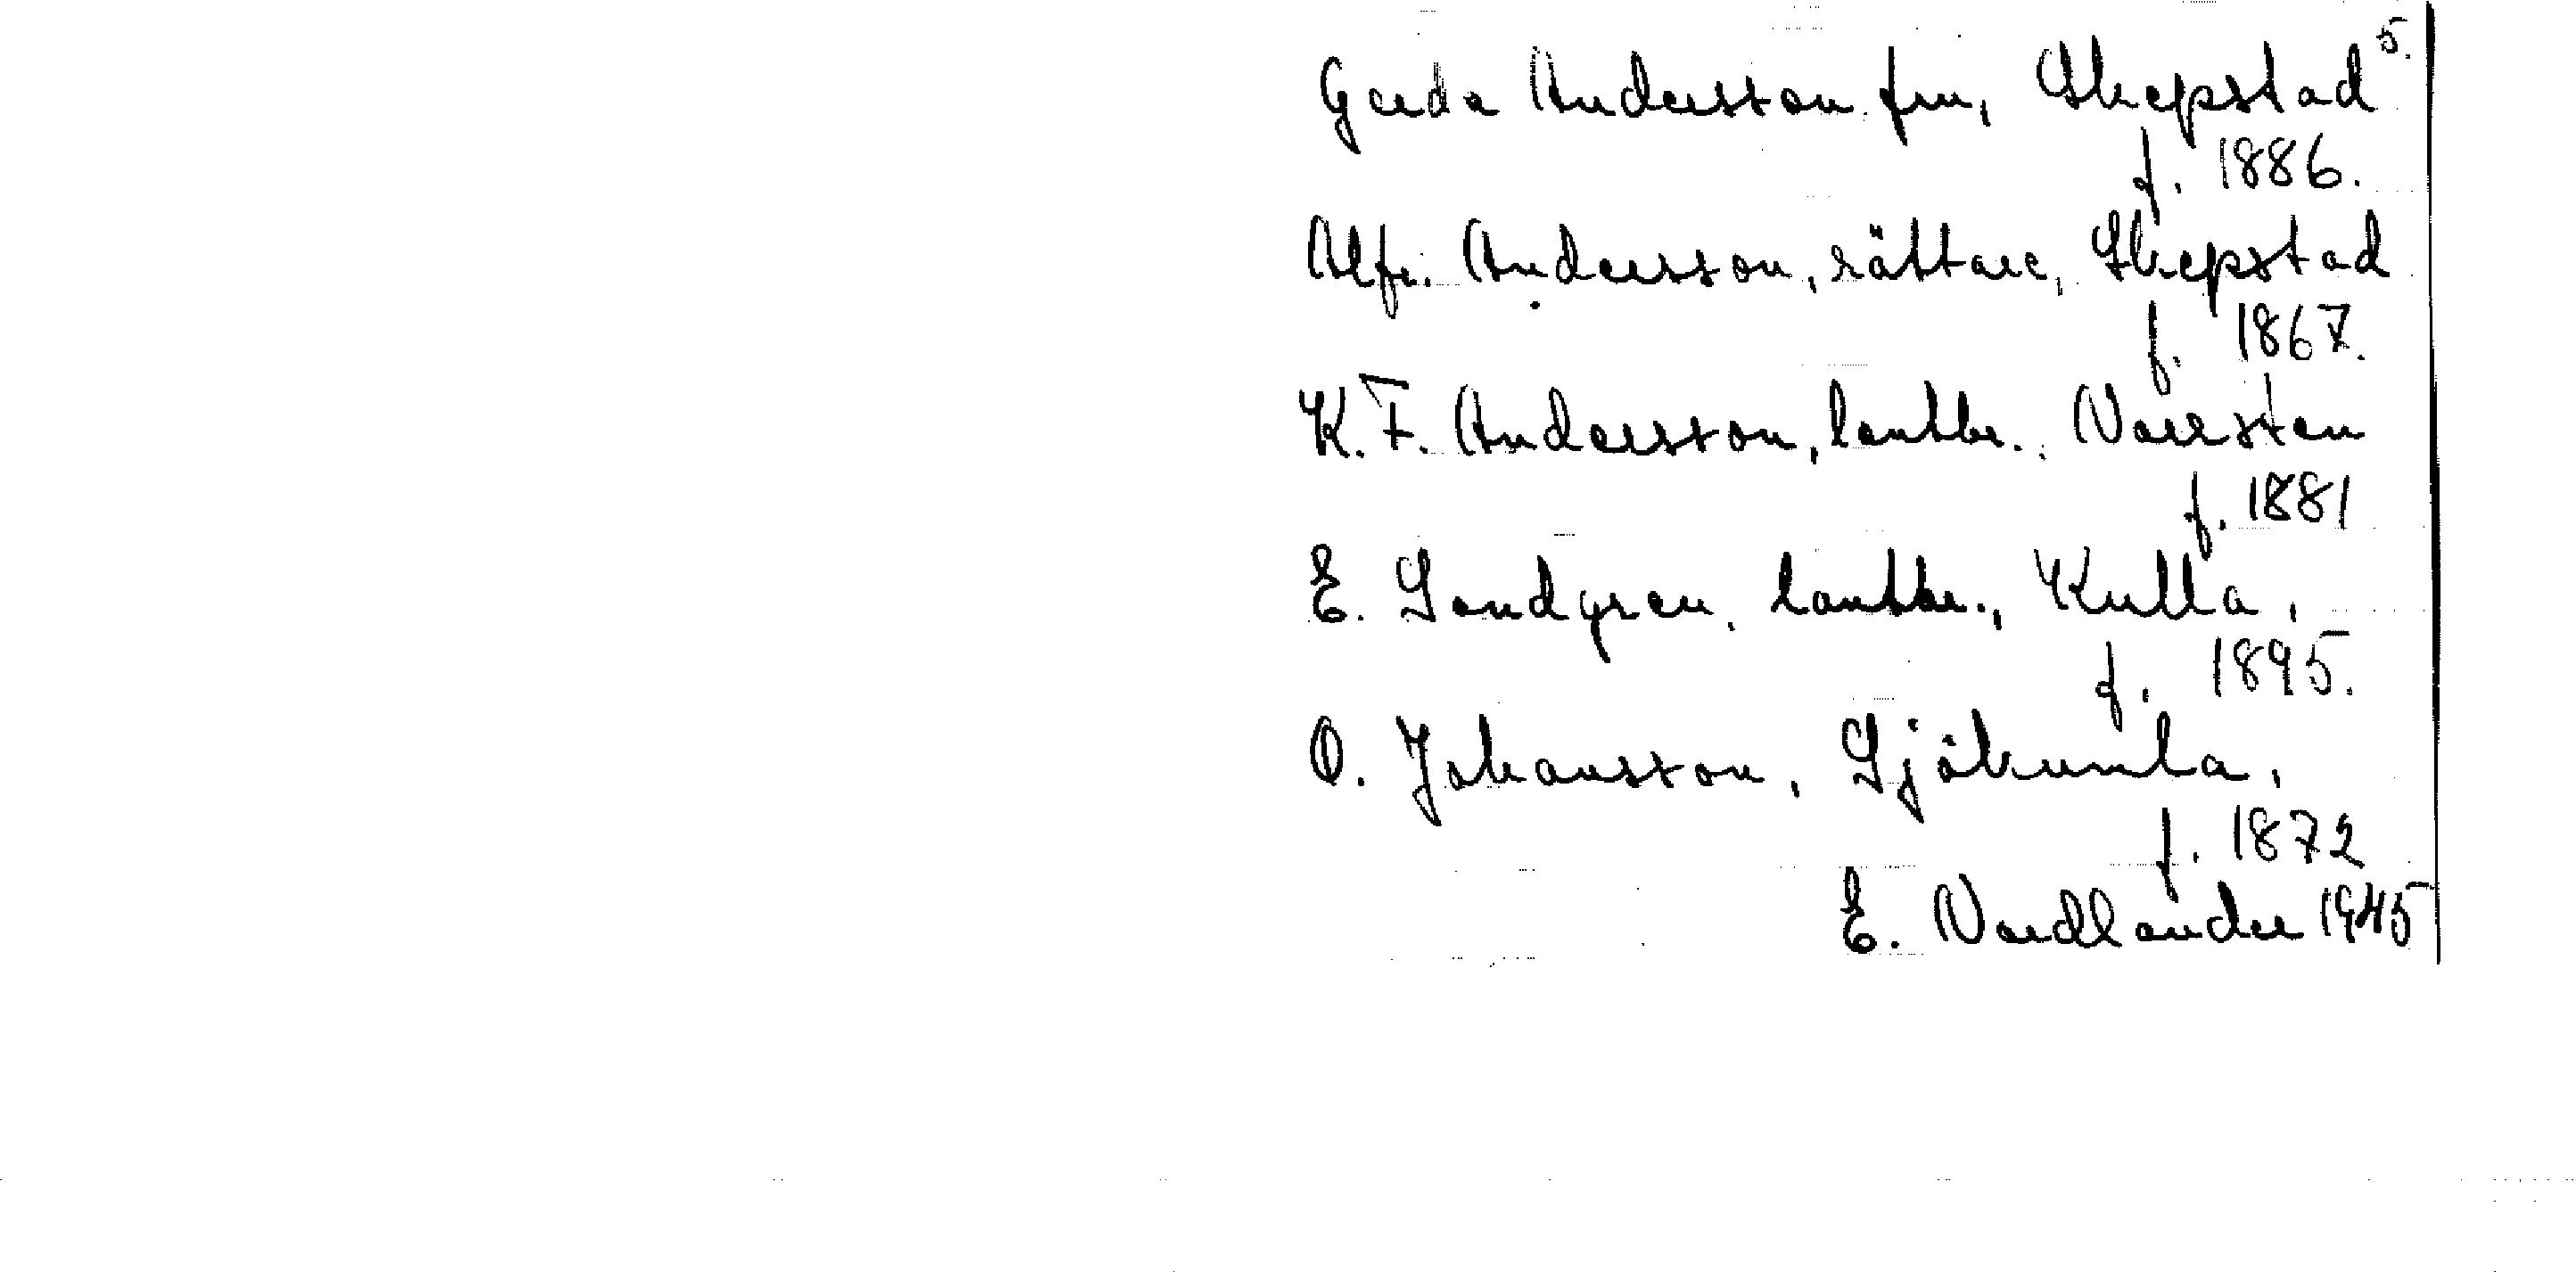 5.
Gerda Andersson fru, Skepstad
f. 1886.
Alfr. Andersson, rättare, Skepstad
f. 1867.
K. F. Andersson, lantbr., Norrsten
f. 1881
E. Sandgren, lantbr., Kulla,
f. 1895.
O. Johansson, Sjökumla,
f. 1872
E. Nordlander 1945